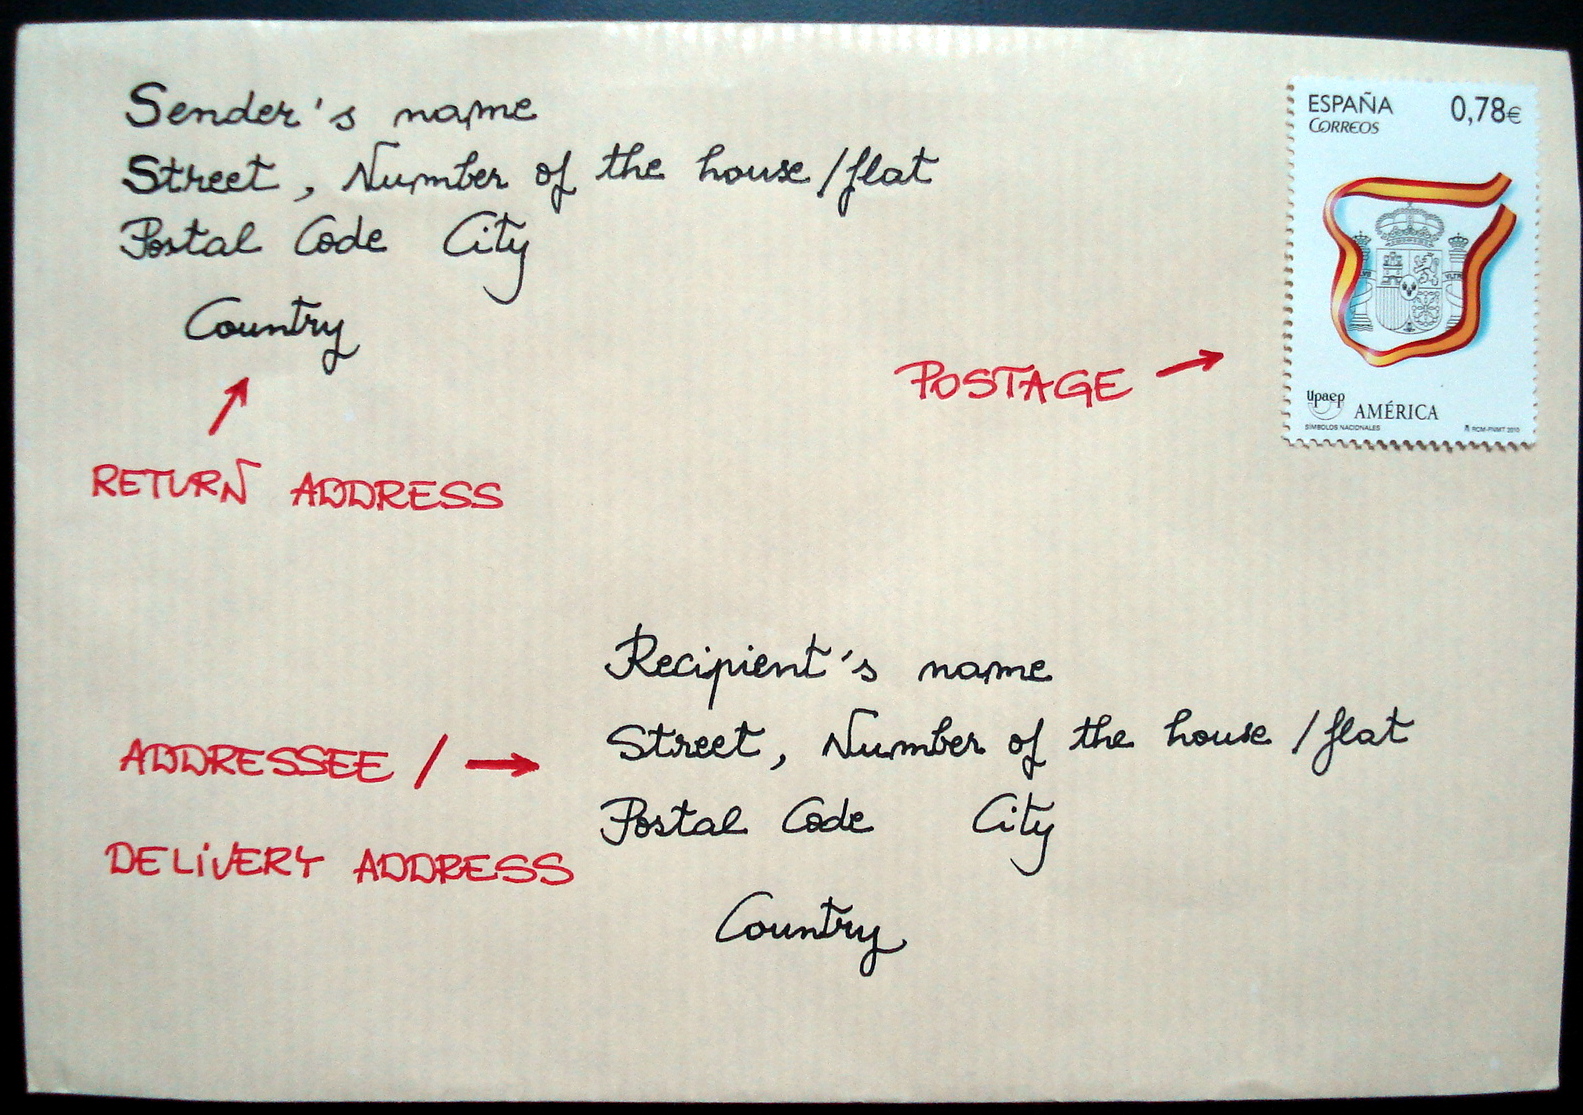 Sender's name
Street, Number of the house/flat
Postal Code City
Country
RETURN ADDRESS
POSTAGE
ESPAÑA 0,78€
CORREOS
upaep AMÉRICA
SÍMBOLOS NACIONALES RCM-FNMT 2010
Recipient's name
Street, Number of the house/flat
Postal Code City
Country
ADDRESSEE /
DELIVERY ADDRESS